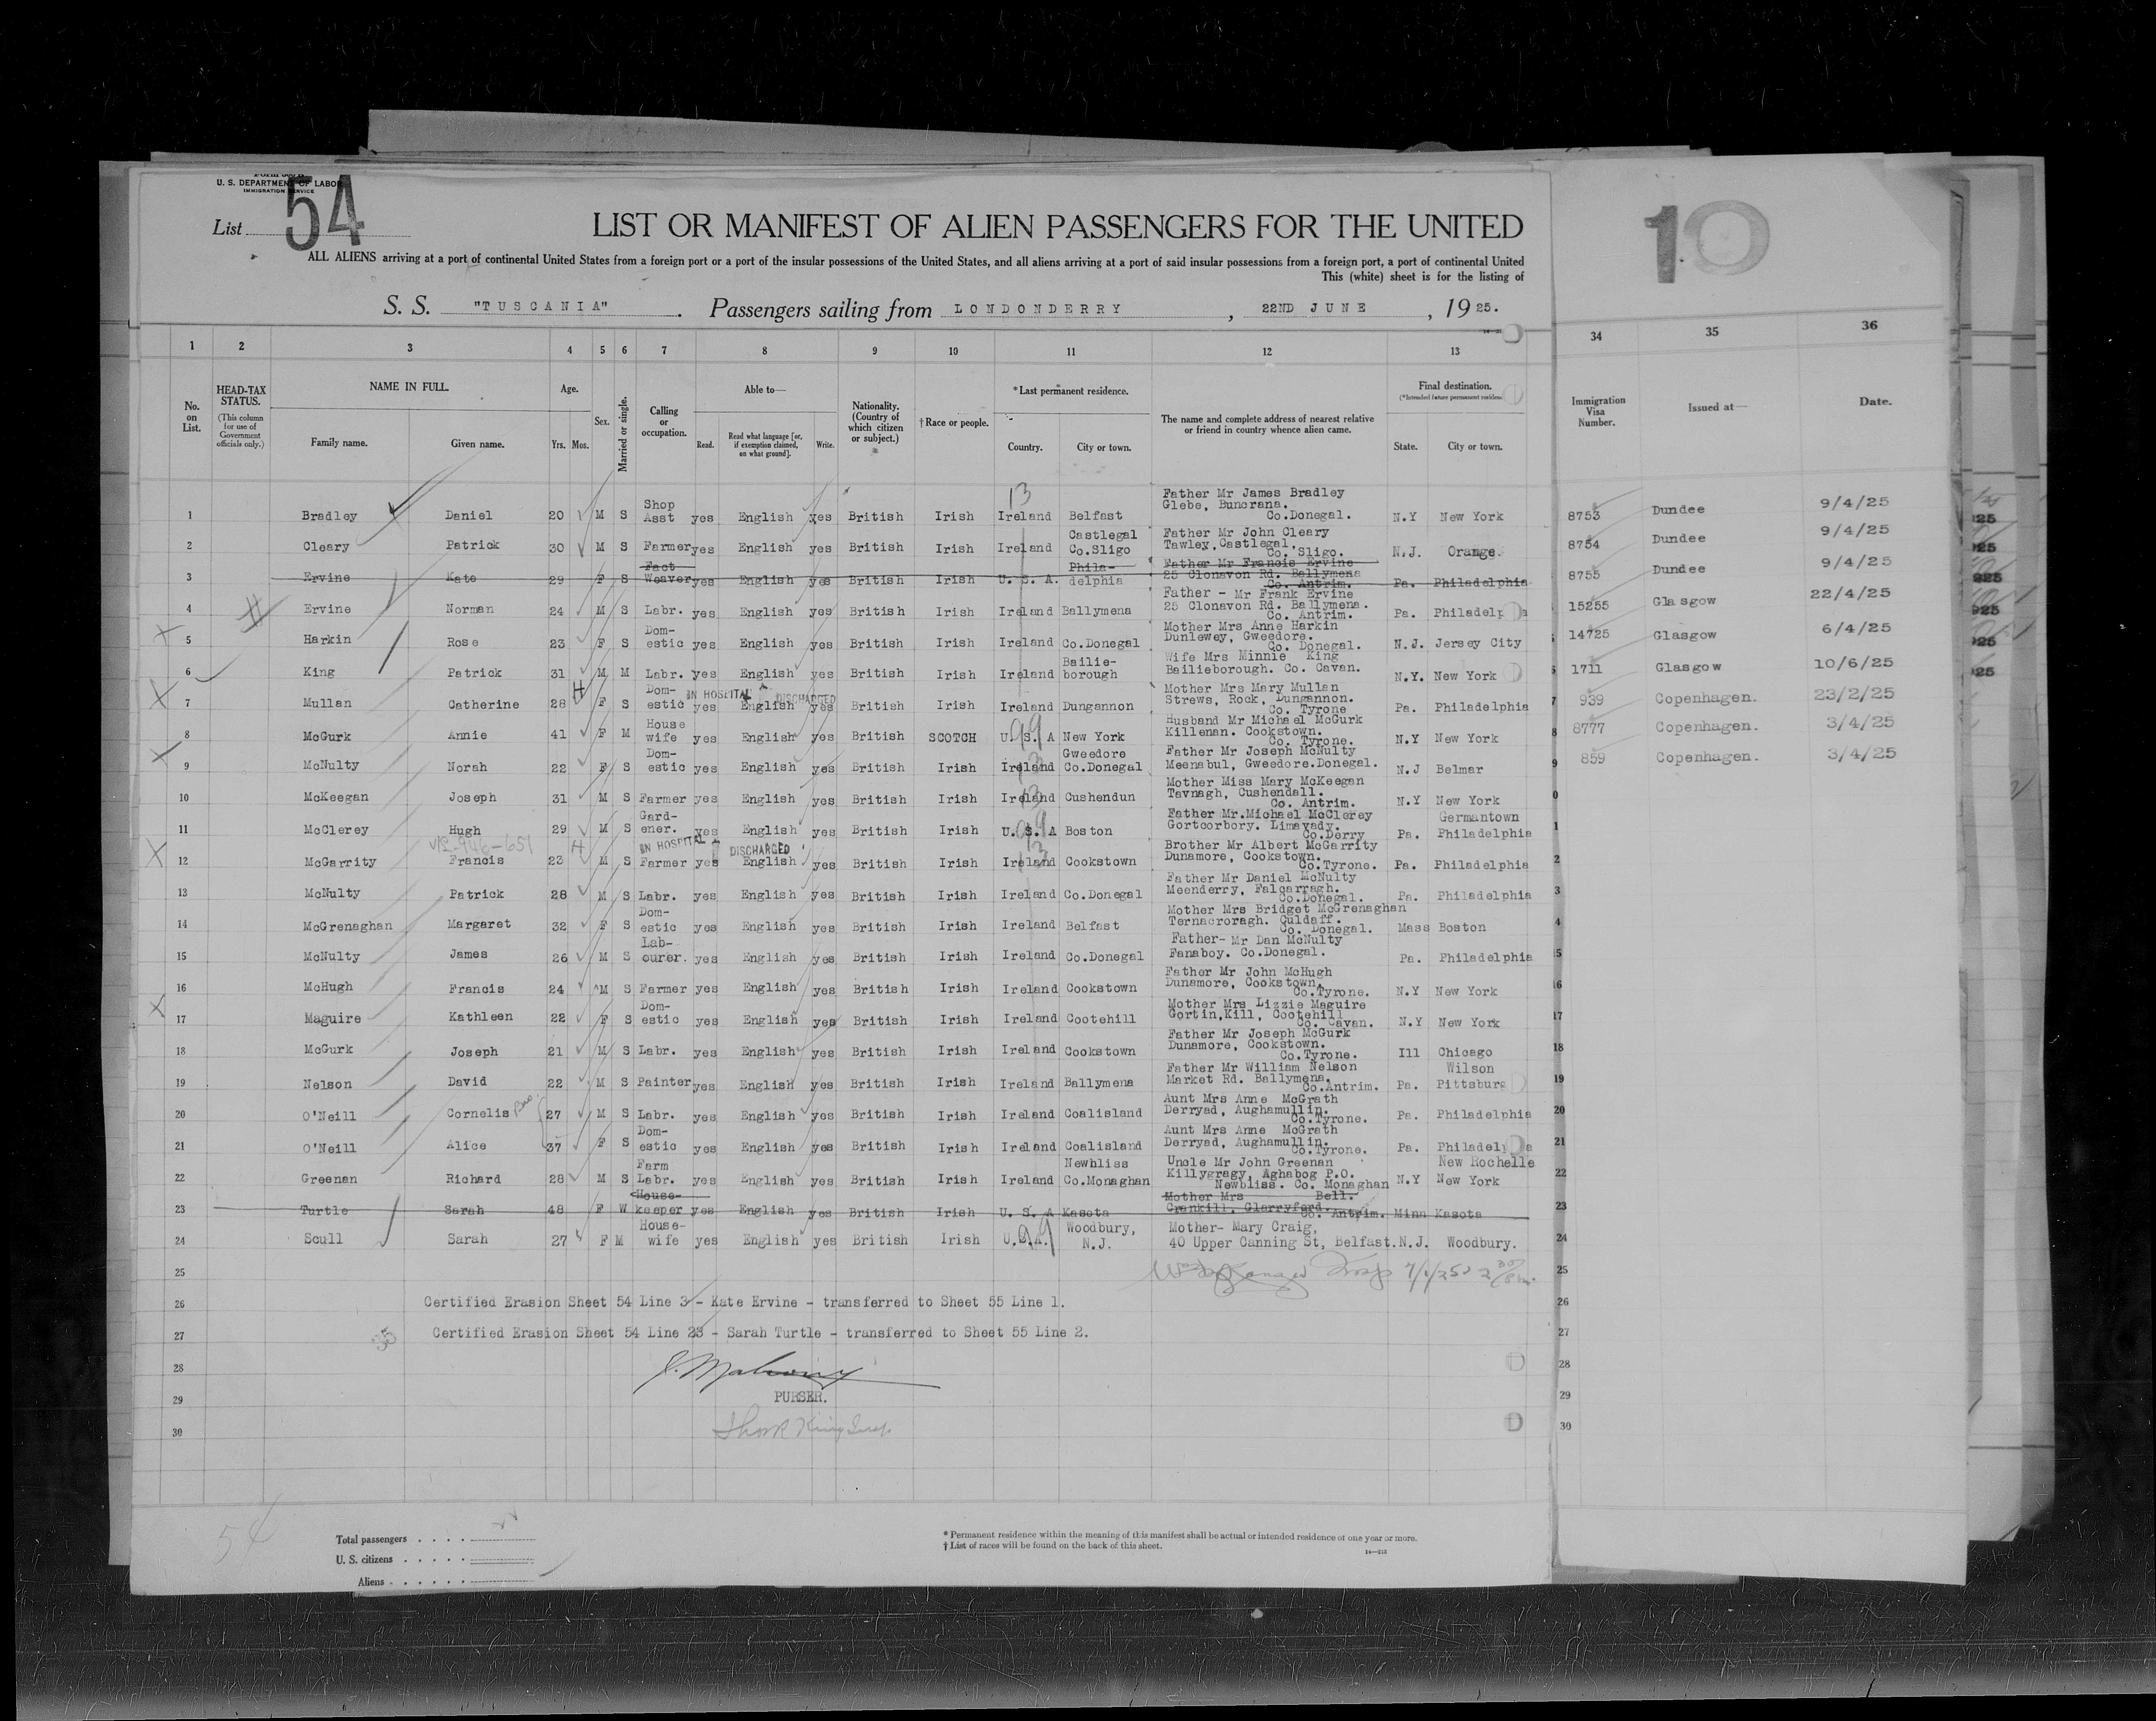 U. S. DEPARTMENT OF LABOR
IMMIGRATION SERVICE
List 54
10
LIST OR MANIFEST OF ALIEN PASSENGERS FOR THE UNITED
ALL ALIENS arriving at a port of continental United States from a foreign port or a port of the insular possessions of the United States, and all aliens arriving at a port of said insular possessions from a foreign port, a port of continental United
This (white) sheet is for the listing of
S. S. "TUSCANIA". Passengers sailing from LONDONDERRY, 22ND JUNE, 1925.
1 2 3 4 5 6 7 8 9 10 11 12 13 34 35 36
No. on List. HEAD-TAX STATUS. (This column for use of Government officials only.) NAME IN FULL. Family name. Given name. Age. Yrs. Mos. Sex. Married or single. Calling or occupation. Able to— Read. Read what language [or, if exemption claimed, on what ground]. Write. Nationality. (Country of which citizen or subject.) †Race or people. *Last permanent residence. Country. City or town. The name and complete address of nearest relative or friend in country whence alien came. Final destination. (*Intended future permanent residence) State. City or town. Immigration Visa Number. Issued at— Date.
1 Bradley Daniel 20 M S Shop Asst yes English yes British Irish Ireland Belfast Father Mr James Bradley Glebe, Buncrana. Co.Donegal. N.Y New York 8753 Dundee 9/4/25
2 Cleary Patrick 30 M S Farmer yes English yes British Irish Ireland Castlegal Co.Sligo Father Mr John Cleary Tawley, Castlegal, Co. Sligo. N.J. Orange. 8754 Dundee 9/4/25
3 Ervine Kate 29 F S Fact Weaver yes English yes British Irish U. S. A. Phila-delphia Father Mr Francis Ervine 25 Clonavon Rd. Ballymena Co. Antrim. Pa. Philadelphia 8755 Dundee 9/4/25
4 Ervine Norman 24 M S Labr. yes English yes British Irish Ireland Ballymena Father - Mr Frank Ervine 25 Clonavon Rd. Ballymena. Co. Antrim. Pa. Philadelp a 15255 Glasgow 22/4/25
5 Harkin Rose 23 F S Dom-estic yes English yes British Irish Ireland Co.Donegal Mother Mrs Anne Harkin Dunlewey, Gweedore. Co. Donegal. N.J. Jersey City 14725 Glasgow 6/4/25
6 King Patrick 31 M M Labr. yes English yes British Irish Ireland Bailie-borough Wife Mrs Minnie King Bailieborough. Co. Cavan. N.Y. New York 1711 Glasgow 10/6/25
IN HOSPITAL DISCHARGED
7 Mullan Catherine 28 F S Dom-estic yes English yes British Irish Ireland Dungannon Mother Mrs Mary Mullan Strews, Rock, Dungannon. Co. Tyrone Pa. Philadelphia 939 Copenhagen. 23/2/25
8 McGurk Annie 41 F M House wife yes English yes British SCOTCH U. S. A New York Husband Mr Michael McGurk Killenan. Cookstown. Co. Tyrone. N.Y New York 8777 Copenhagen. 3/4/25
9 McNulty Norah 22 F S Dom-estic yes English yes British Irish Ireland Gweedore Co.Donegal Father Mr Joseph McNulty Meenabul, Gweedore.Donegal. N.J Belmar 859 Copenhagen. 3/4/25
10 McKeegan Joseph 31 M S Farmer yes English yes British Irish Ireland Cushendun Mother Miss Mary McKeegan Tavnagh, Cushendall. Co. Antrim. N.Y New York
11 McClerey Hugh 29 M S Gard-ener. yes English yes British Irish U. S. A Boston Father Mr.Michael McClerey Gortcorbory. Limavady. Co.Derry Pa. Germantown Philadelphia
IN HOSPITAL DISCHARGED
12 McGarrity Francis 23 M S Farmer yes English yes British Irish Ireland Cookstown Brother Mr Albert McGarrity Dunamore, Cookstown. Co.Tyrone. Pa. Philadelphia
13 McNulty Patrick 28 M S Labr. yes English yes British Irish Ireland Co.Donegal Father Mr Daniel McNulty Meenderry, Falcarragh. Co.Donegal. Pa. Philadelphia
14 McGrenaghan Margaret 32 F S Dom-estic yes English yes British Irish Ireland Belfast Mother Mrs Bridget McGrenaghan Ternacroragh. Culdaff. Co. Donegal. Mass Boston
15 McNulty James 26 M S Lab-ourer. yes English yes British Irish Ireland Co.Donegal Father- Mr Dan McNulty Fanaboy. Co.Donegal. Pa. Philadelphia
16 McHugh Francis 24 M S Farmer yes English yes British Irish Ireland Cookstown Father Mr John McHugh Dunamore, Cookstown. Co.Tyrone. N.Y New York
17 Maguire Kathleen 22 F S Dom-estic yes English yes British Irish Ireland Cootehill Mother Mrs Lizzie Maguire Gortin,Kill, Cootehill Co. Cavan. N.Y New York
18 McGurk Joseph 21 M S Labr. yes English yes British Irish Ireland Cookstown Father Mr Joseph McGurk Dunamore, Cookstown. Co.Tyrone. Ill Chicago
19 Nelson David 22 M S Painter yes English yes British Irish Ireland Ballymena Father Mr William Nelson Market Rd. Ballymena. Co.Antrim. Pa. Wilson Pittsburg
20 O'Neill Cornelis 27 M S Labr. yes English yes British Irish Ireland Coalisland Aunt Mrs Anne McGrath Derryad, Aughamullin. Co.Tyrone. Pa. Philadelphia
21 O'Neill Alice 37 F S Dom-estic yes English yes British Irish Ireland Coalisland Aunt Mrs Anne McGrath Derryad, Aughamullin. Co.Tyrone. Pa. Philadel a
22 Greenan Richard 28 M S Farm Labr. yes English yes British Irish Ireland Newbliss Co.Monaghan Uncle Mr John Greenan Killygragy, Aghabog P.O. Newbliss. Co. Monaghan N.Y New Rochelle New York
23 Turtle Sarah 48 F W House-keeper yes English yes British Irish U. S. A Kasota Mother Mrs Bell. Crankill, Glarryford. Co. Antrim. Minn Kasota
24 Scull Sarah 27 F M House-wife yes English yes British Irish U.S.A. Woodbury, N.J. Mother- Mary Craig. 40 Upper Canning St, Belfast. N.J. Woodbury.
25
26 Certified Erasion Sheet 54 Line 3 - Kate Ervine - transferred to Sheet 55 Line 1.
27 Certified Erasion Sheet 54 Line 23 - Sarah Turtle - transferred to Sheet 55 Line 2.
28
29 PURSER.
30
54
Total passengers
U. S. citizens
Aliens
* Permanent residence within the meaning of this manifest shall be actual or intended residence of one year or more.
† List of races will be found on the back of this sheet.